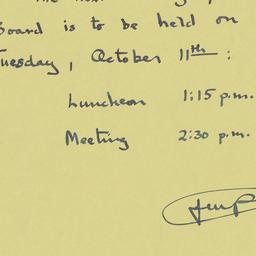 Board is to be held on
Tuesday, October 11th :
Luncheon 1:15 p.m.
Meeting 2:30 p.m.